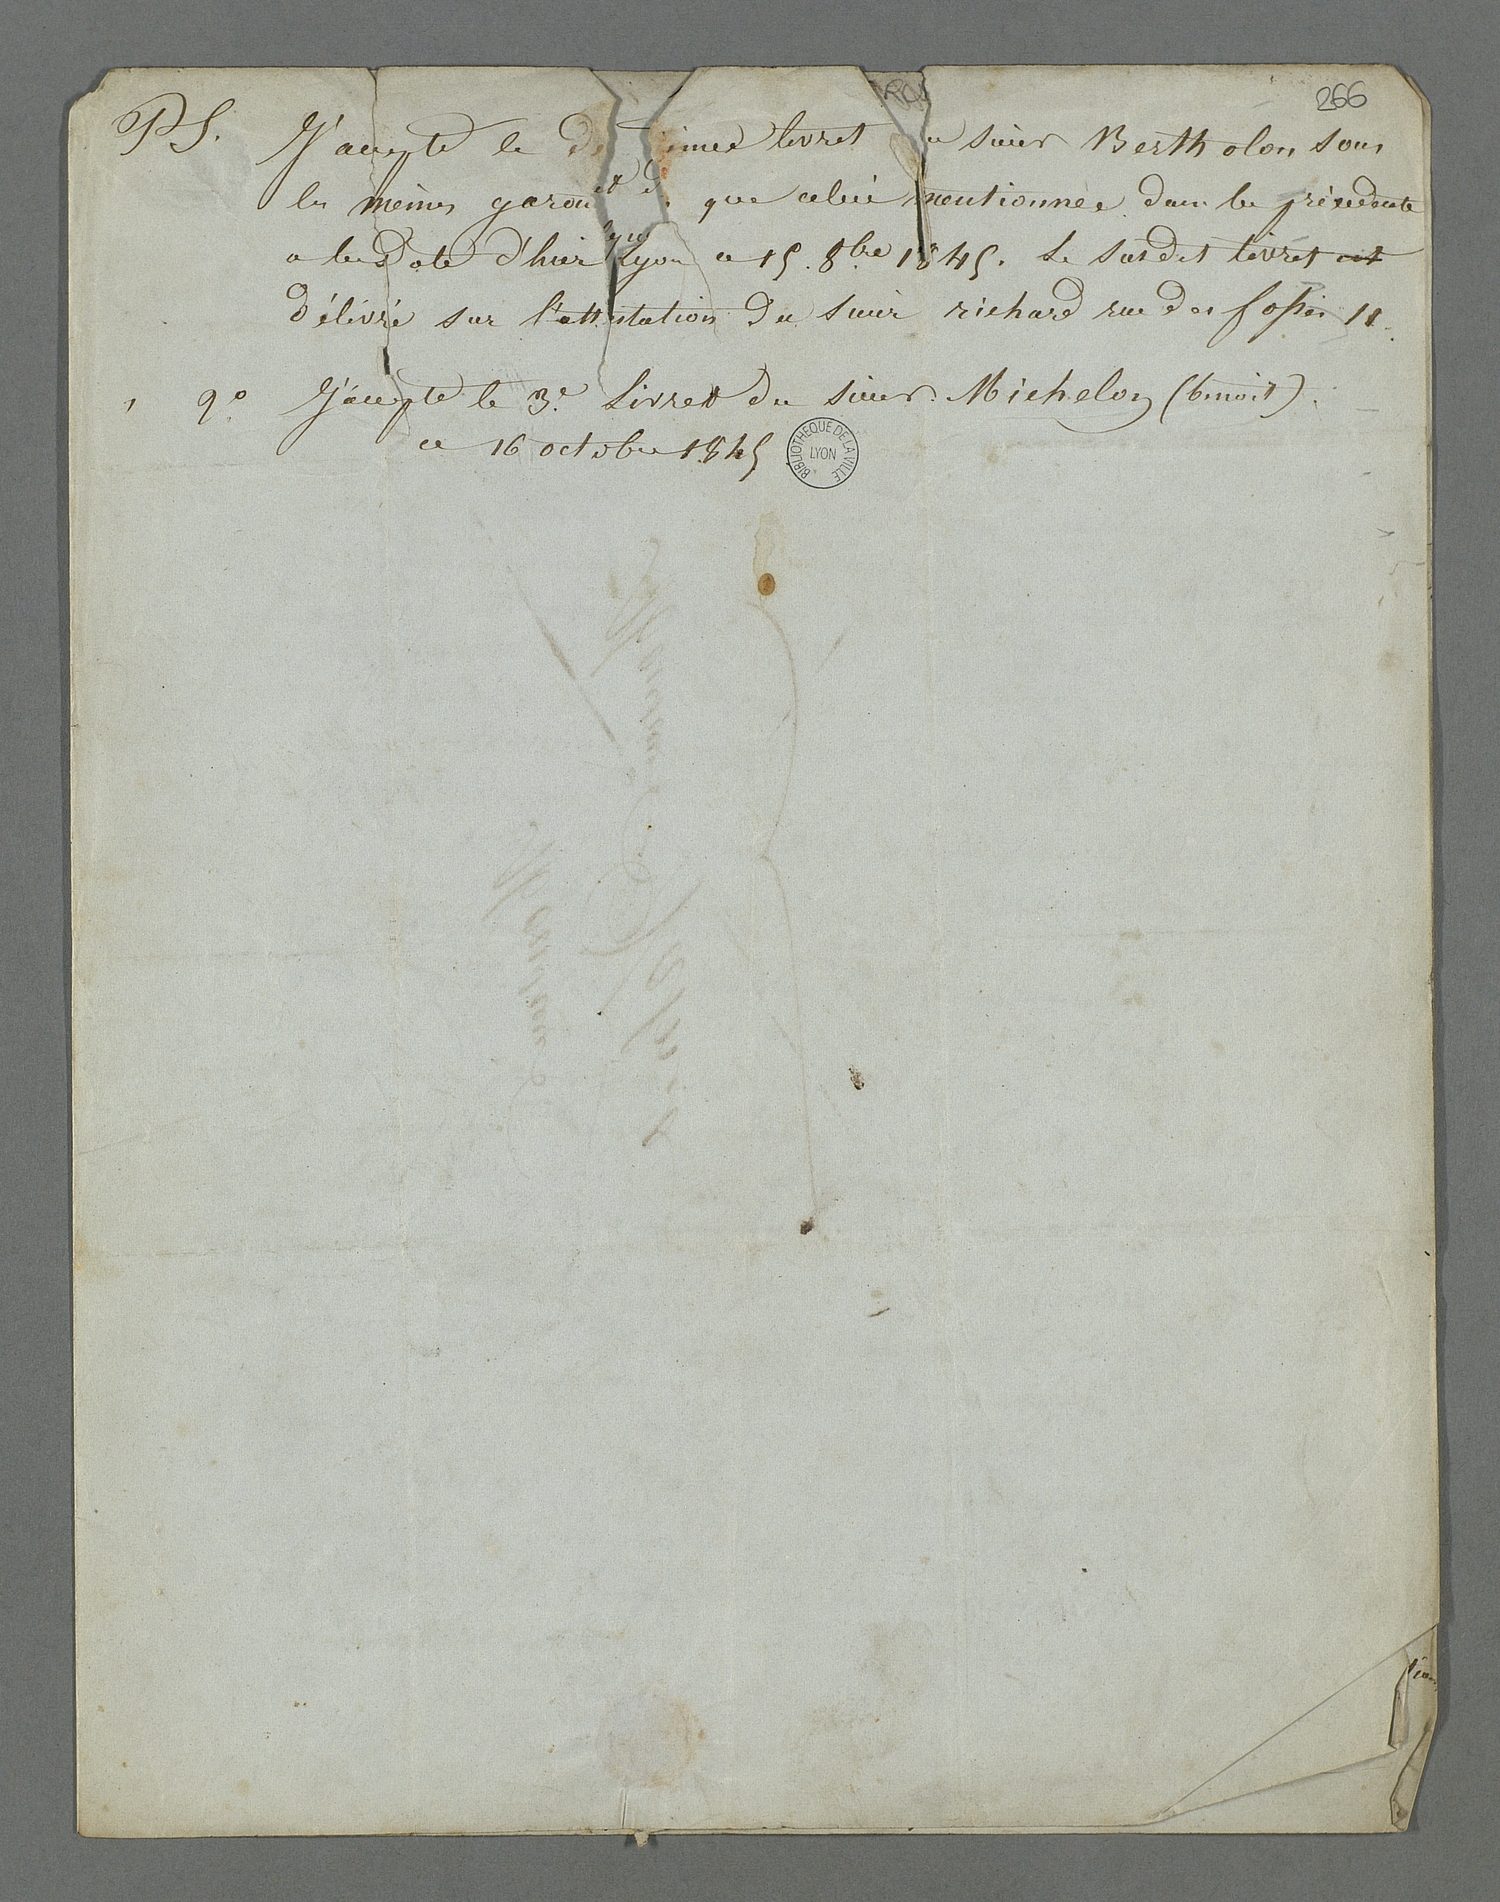 266
PS. J'accepte le de ime livret du sieur Bertholon sous
les mêmes garan et d que celui mentionnée dans la précédente
a la date d'hier Lyon ce 15 8bre 1845. Le susdit livret est
délivré sur l'attestation du sieur richard rue des fossés 11.
2o J'accepte le 3e Livret du sieur Michelon (benoit).
ce 16 octobre 1845
BIBLIOTHEQUE DE LA VILLE
LYON